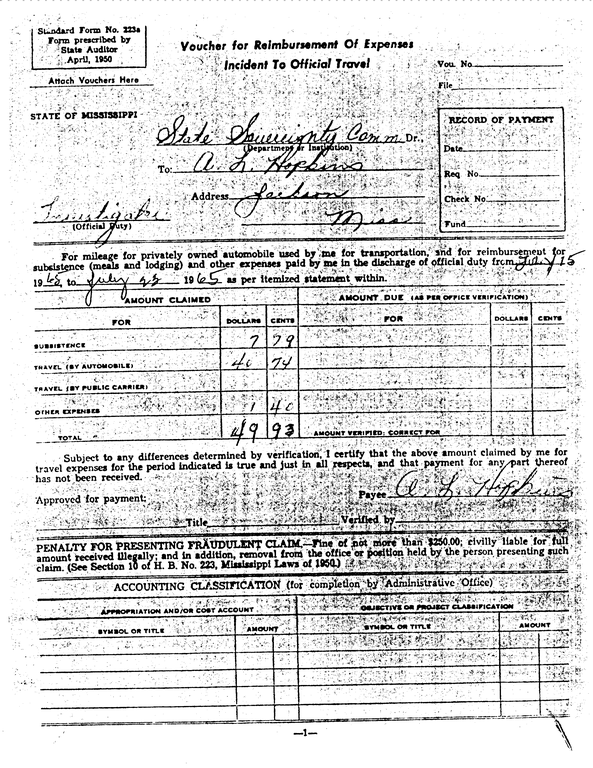 Standard Form No. 223a
Form prescribed by
State Auditor
April, 1950
Attach Vouchers Here
Voucher for Reimbursement Of Expenses
Incident To Official Travel
Vou. No.
File
STATE OF MISSISSIPPI
State Sovereignty Comm Dr.,
(Department or Institution)
To: A. L. Hopkins
Address Jackson
Miss
Investigator
(Official Duty)
RECORD OF PAYMENT
Date
Req No.
Check No.
Fund
For mileage for privately owned automobile used by me for transportation, and for reimbursement for
subsistence (meals and lodging) and other expenses paid by me in the discharge of official duty from July 15
1965, to July 22 1965 as per itemized statement within.
AMOUNT CLAIMED AMOUNT DUE (AS PER OFFICE VERIFICATION)
FOR DOLLARS CENTS FOR DOLLARS CENTS
SUBSISTENCE 7 79
TRAVEL (BY AUTOMOBILE) 40 74
TRAVEL (BY PUBLIC CARRIER)
OTHER EXPENSES 1 40
TOTAL 49 93 AMOUNT VERIFIED: CORRECT FOR
Subject to any differences determined by verification, I certify that the above amount claimed by me for
travel expenses for the period indicated is true and just in all respects, and that payment for any part thereof
has not been received.
Payee A L Hopkins
Approved for payment:
Title Verified by
PENALTY FOR PRESENTING FRAUDULENT CLAIM.—Fine of not more than $250.00; civilly liable for full
amount received illegally; and in addition, removal from the office or position held by the person presenting such
claim. (See Section 10 of H. B. No. 223, Mississippi Laws of 1950.)
ACCOUNTING CLASSIFICATION (for completion by Administrative Office)
APPROPRIATION AND/OR COST ACCOUNT OBJECTIVE OR PROJECT CLASSIFICATION
SYMBOL OR TITLE AMOUNT SYMBOL OR TITLE AMOUNT
—1—